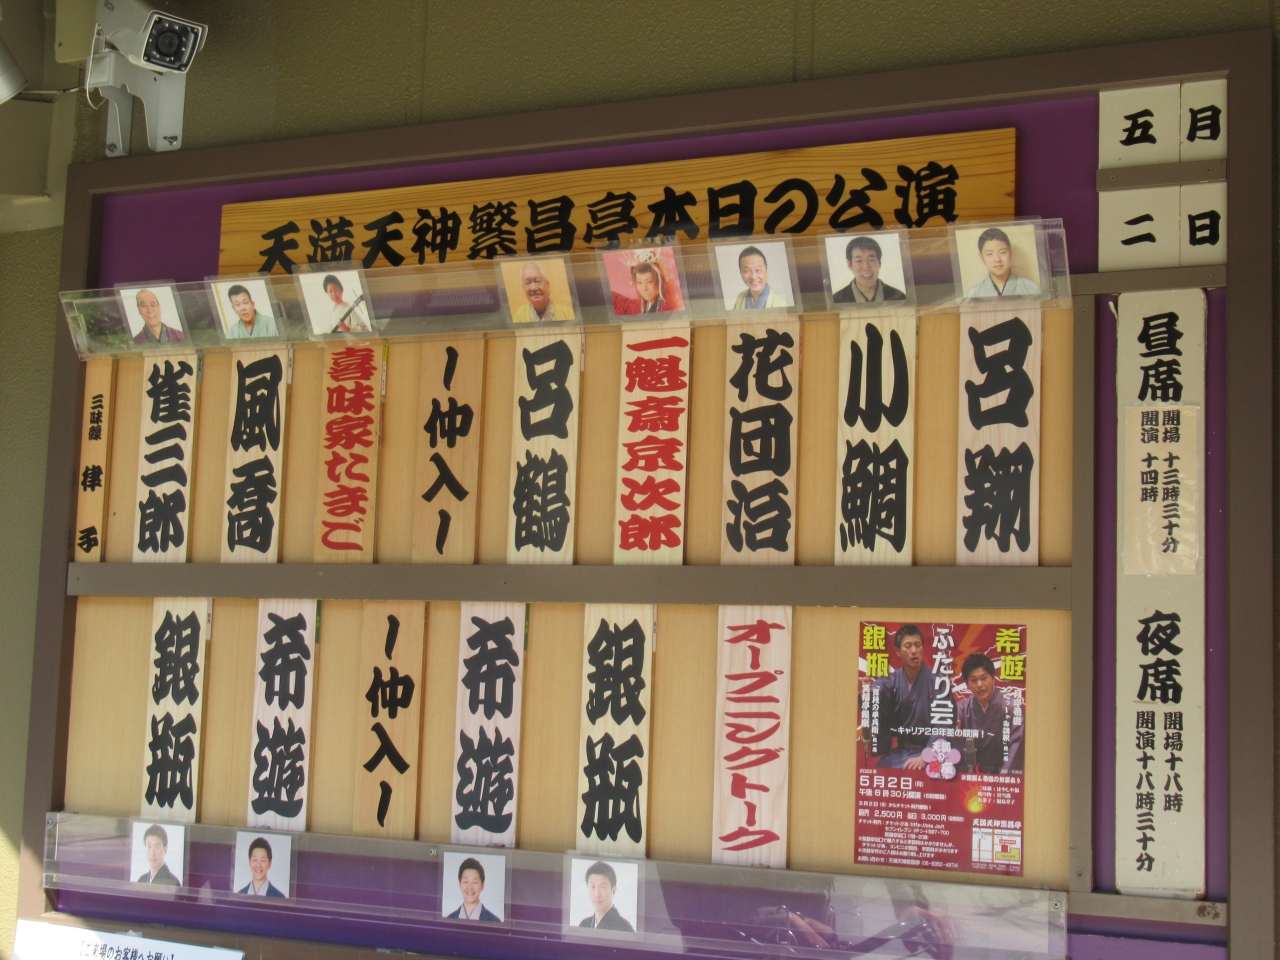 天満天神繁昌亭本日の公演
五月
二日
昼席
開場 十三時三十分
開演 十四時
夜席
開場十八時
開演十八時三十分
呂翔
小鯛
花団治
一魁斎京次郎
呂鶴
～仲入～
喜味家たまご
風喬
雀三郎
三味線 律子
希遊
ふたり会
銀瓶
～キャリア29年差の競演！～
5月2日(月)
午後6時30分開演
前売 2,500円 当日 3,000円
天満天神繁昌亭
オープニングトーク
銀瓶
希遊
～仲入～
希遊
銀瓶
【ご来場のお客様へお願い】